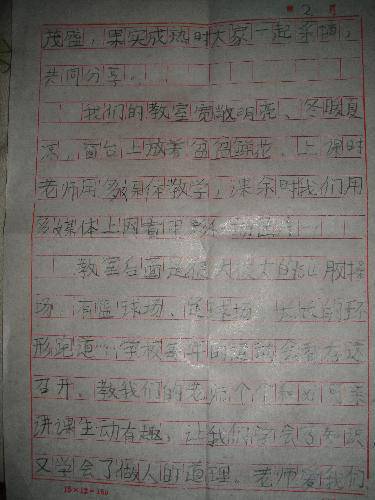 第 2 页
茂盛，果实成熟时大家一起采摘，
共同分享。
我们的教室宽敞明亮、冬暖夏
凉，窗台上放着盆盆鲜花，上课时
老师用多媒体教学，课余时我们用
多媒体上网查
教室后面是很大很大的 胶操
场，有篮球场、足球场、长长的环
形跑道…学校每年的运动会都在这
召开。教我们的老师个个和
讲课生动有趣，让我们学会了知识
又学会了做人的道理。老师 我们
15×12=180